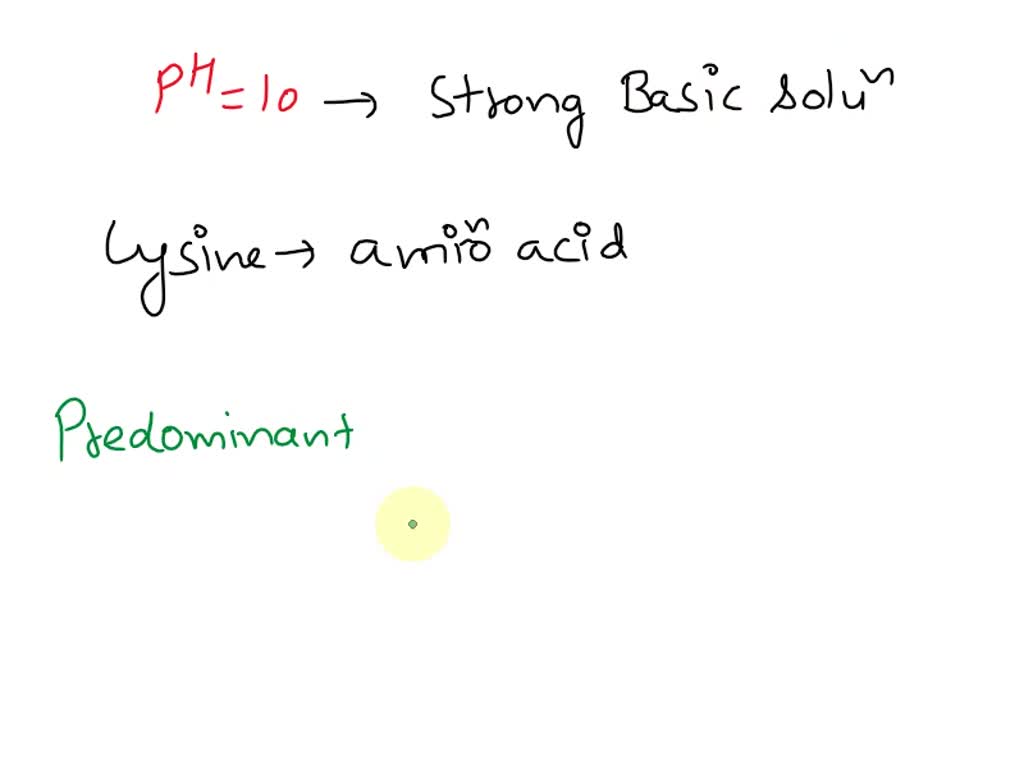 PH = 10 → Strong Basic soluⁿ
Lysine → amiⁿo acid
Predominant